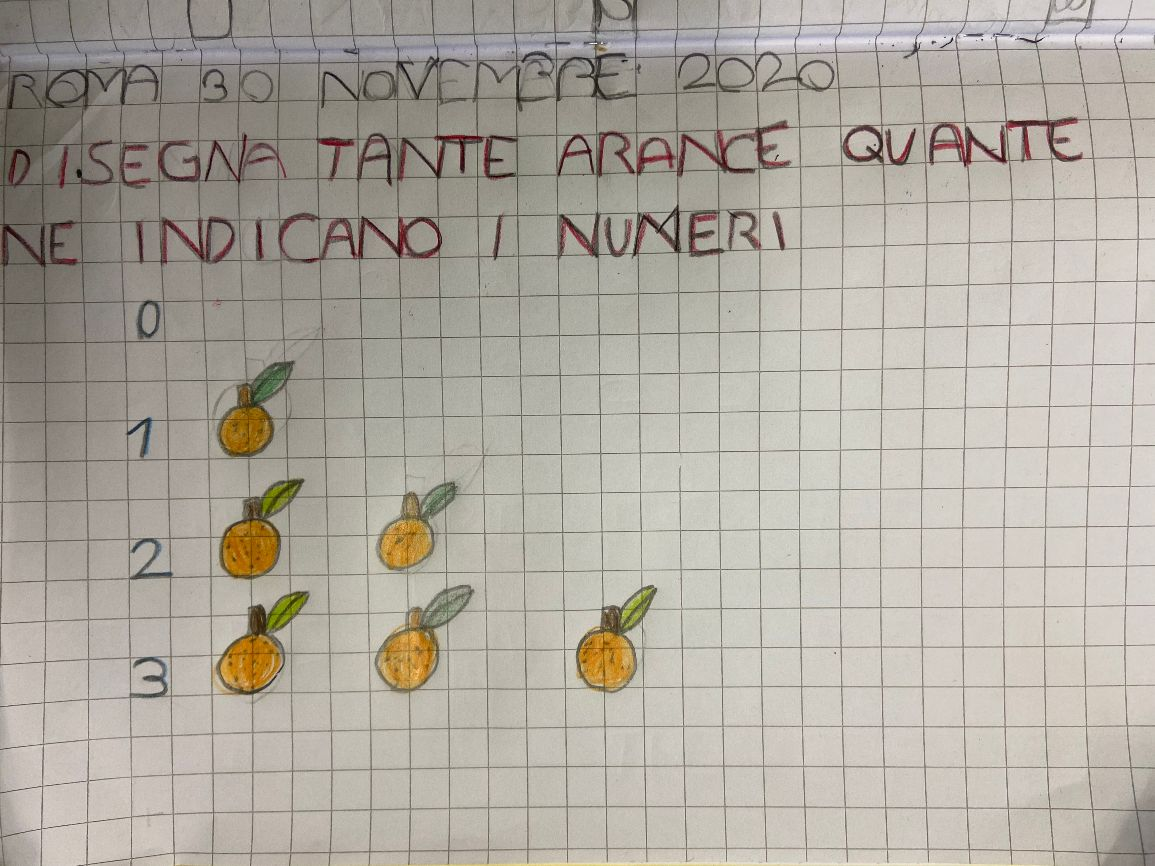 ROMA 30 NOVEMBRE 2020
DISEGNA TANTE ARANCE QUANTE
NE INDICANO I NUMERI
0
1
2
3